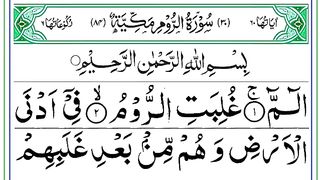 اٰیَاتُهَا ٦٠ (٣٠) سُوْرَةُ الرُّوْمِ مَكِّیَّةٌ (٨٤) رُكُوْعَاتُهَا ٦
بِسْمِ اللّٰهِ الرَّحْمٰنِ الرَّحِیْمِ
الٓمّٓ ۚ‏﴿۱﴾ غُلِبَتِ الرُّوْمُ ۙ‏﴿۲﴾ فِیْۤ اَدْنَی
الْاَرْضِ وَ هُمْ مِّنْۢ بَعْدِ غَلَبِهِمْ